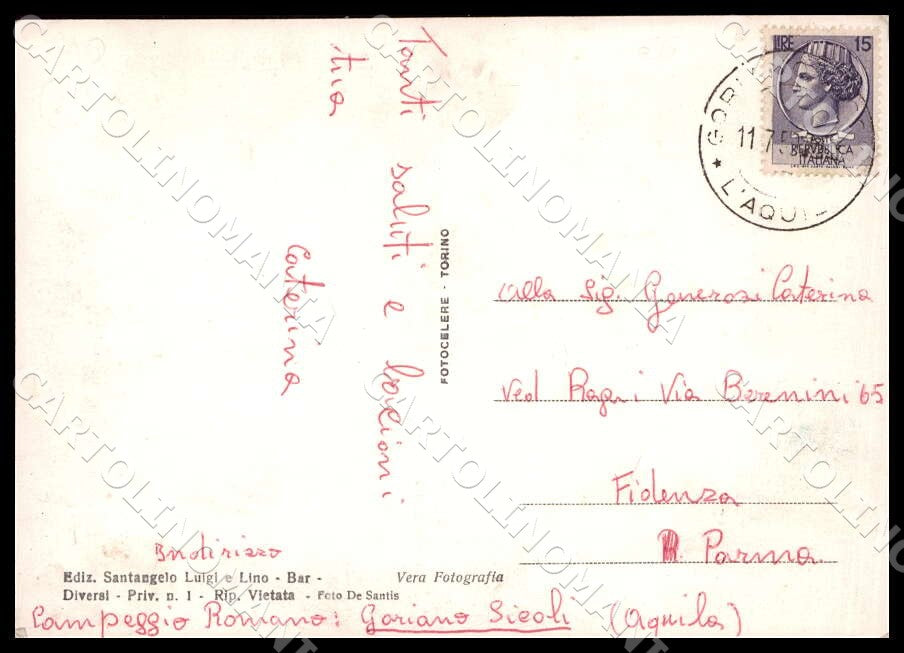 Tanti saluti e bacioni
tua
Caterina
FOTOCELERE - TORINO
LIRE 15
REPVBBLICA
ITALIANA
GOR
11.7.5
★ L'AQUI
Alla Sig. Generosi Caterina
Ved Ragni Via Berenini 65
Fidenza
Parma
Indirizzo
Ediz. Santangelo Luigi e Lino - Bar -
Diversi - Priv. n. 1 - Rip. Vietata - Foto De Santis
Vera Fotografia
Campeggio Romano: Goriano Sicoli (Aquila)
CARTOLINOMANIA